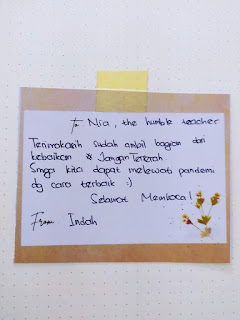 To Nia, the humble teacher
Terimakasih sudah ambil bagian dari
kebaikan & Jangan Tererah.
Smoga kita dapat melewati pandemi
dg cara terbaik :)
Selamat Membaca!
From Indah